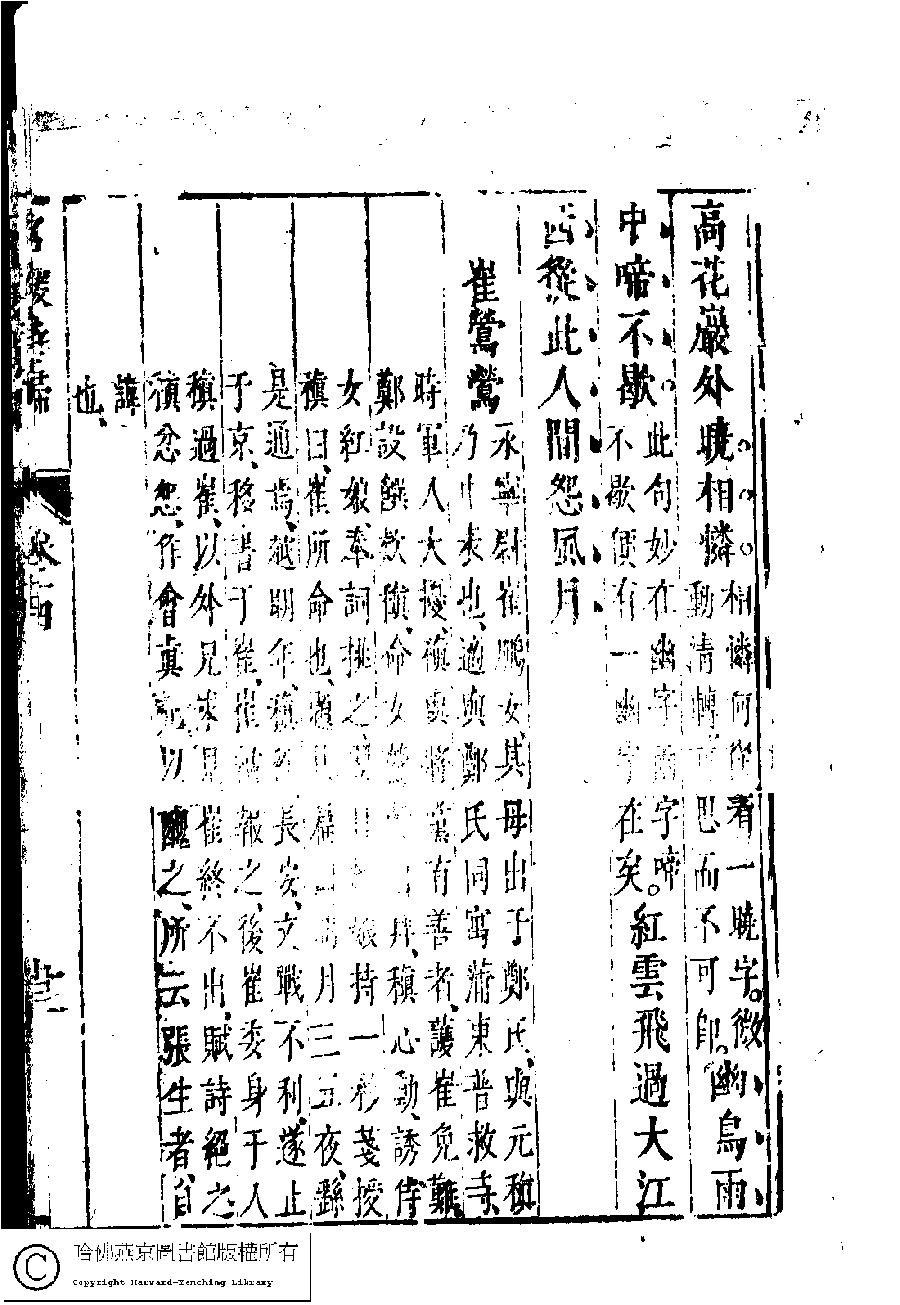 高花巖外曉相憐相憐何從看一曉字。微動清轉可思而不可卽。幽鳥雨
中啼不歇此句妙在幽字雨字啼不歇便有一幽字在矣。紅雲飛過大江
西從此人間怨風月
崔鶯鶯
永寧尉崔鵬女、其母出于鄭氏、與元稹
乃中表也、適與鄭氏同寓蒲東普救寺、
時軍人大擾、稹與將黨有善者、護崔免難、
鄭設饌款稹、命女鶯鶯出拜、稹心動、誘侍
女紅娘、奉詞挑之、翌日紅娘持一彩箋授
稹曰、崔所命也、題曰
月三五夜、繇
是通焉、越明年、稹
長安、文戰不利、遂止
于京、移書于崔、崔
報之、後崔委身于人
稹過崔、以外兄求見崔終不出、賦詩絕之
稹忿怨、作會真記以醜之、所云張生者、自
諱
也、
名媛詩歸
卷十四
哈佛燕京圖書館版權所有
Copyright Harvard-Yenching Library